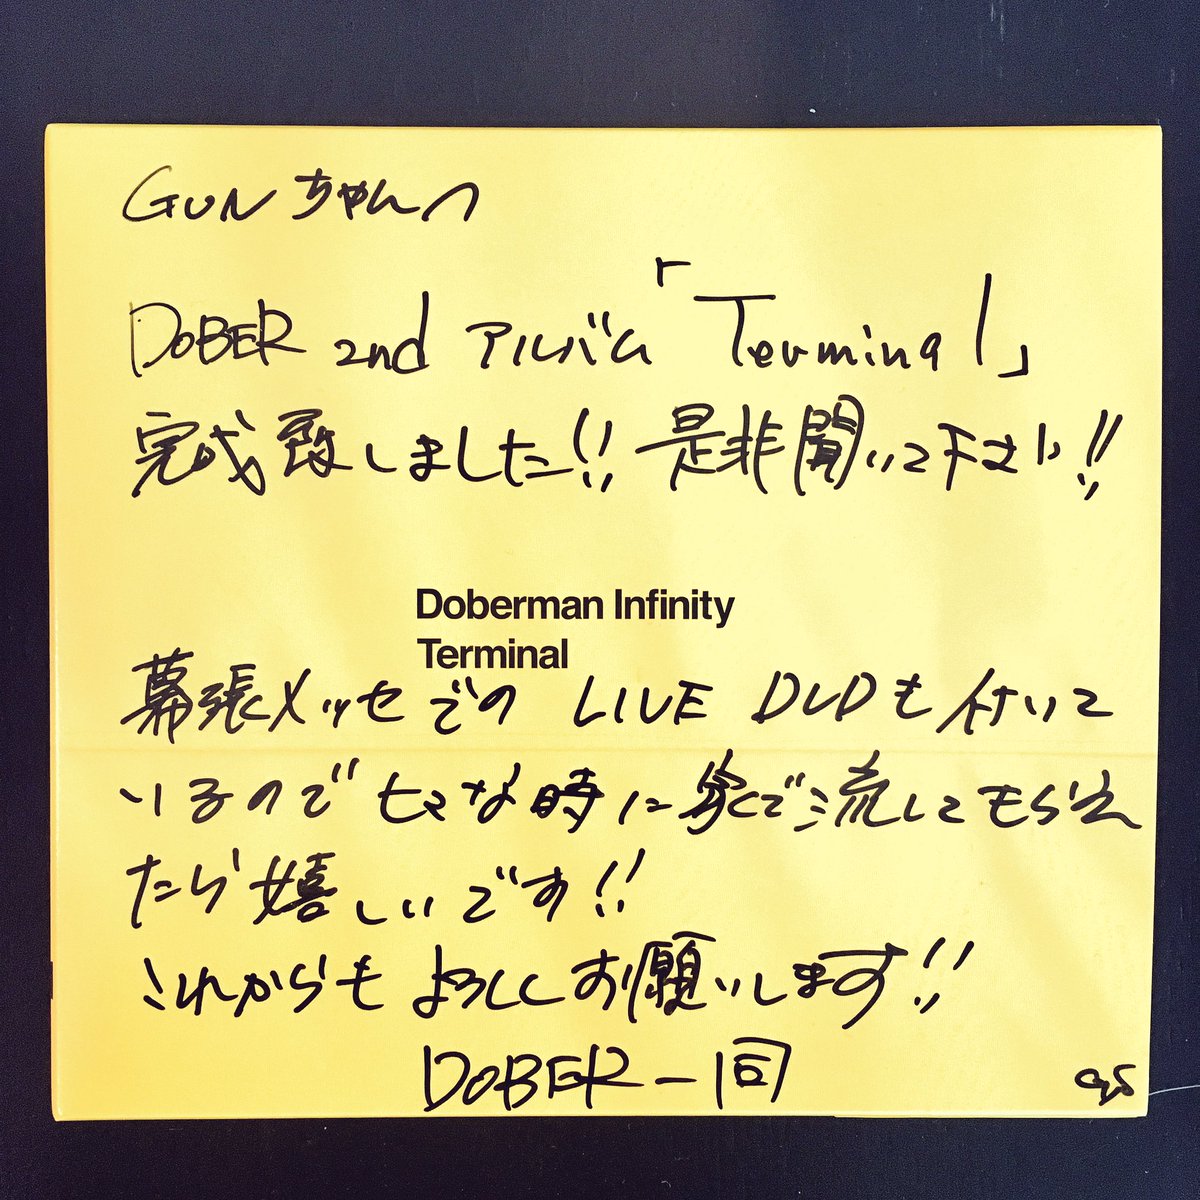 GUNちゃんへ
DOBER 2nd アルバム「Terminal」
完成致しました!! 是非聞いて下さい!!
Doberman Infinity
Terminal
幕張メッセでの LIVE DVDも付いて
いるのでヒマな時に家で流してもらえ
たら嬉しいです!!
これからもよろしくお願いします!!
DOBER一同